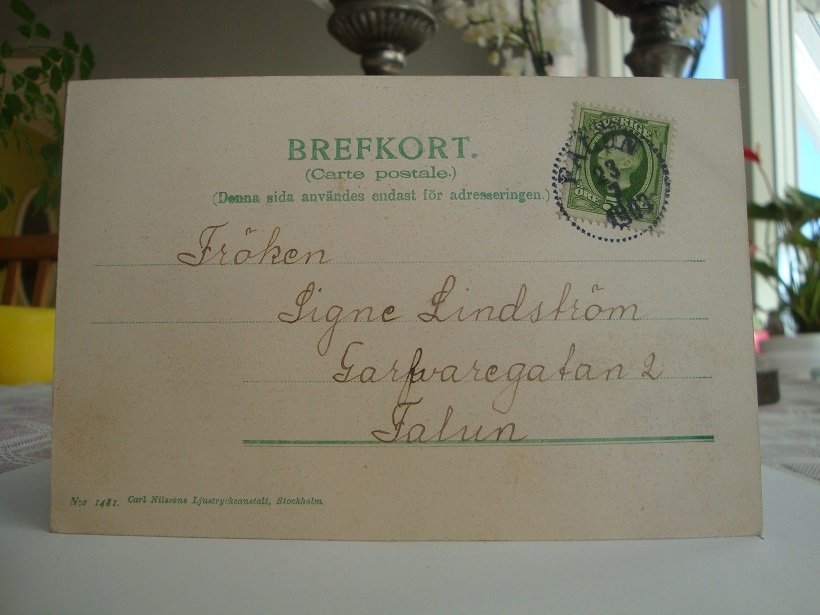 BREFKORT.
(Carte postale.)
(Denna sida användes endast för adresseringen.)
SVERIGE
FALUN
Fröken
Signe Lindström
Garfvaregatan 2
Falun
N:o 1481. Carl Nilssons Ljustrycksanstalt, Stockholm.